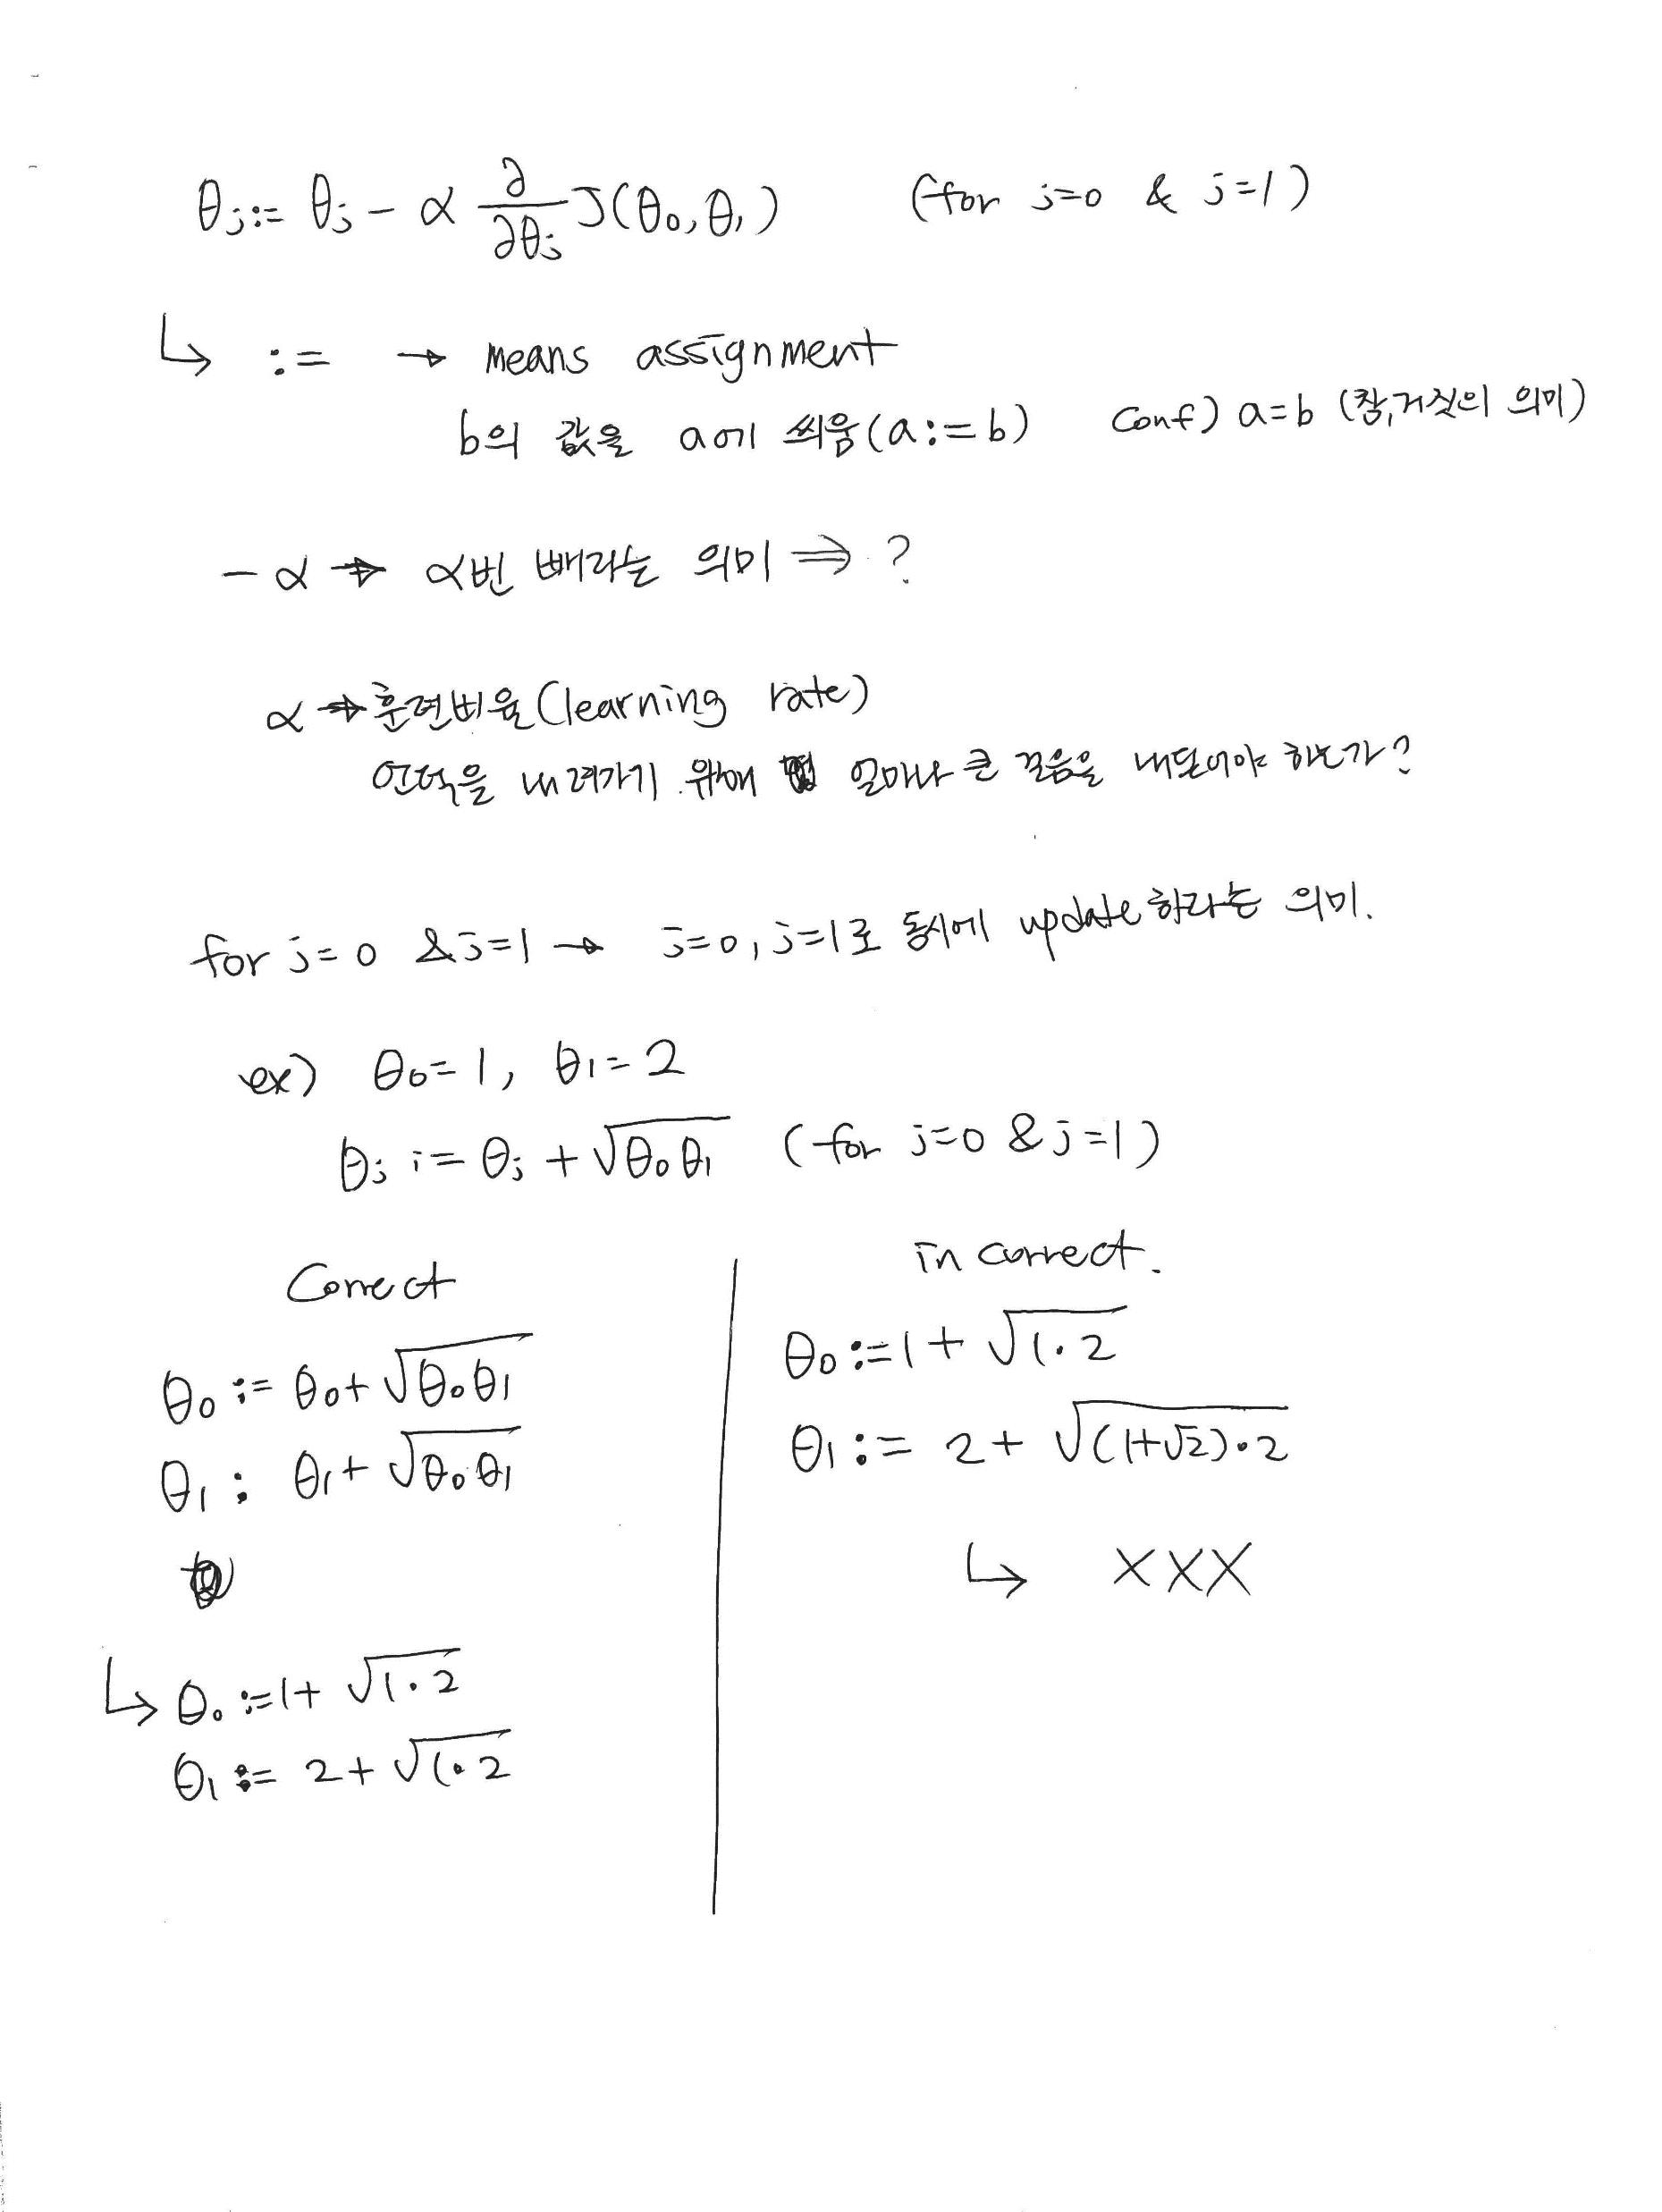 θj := θj - α ∂/∂θj J(θ0, θ1) (for j=0 & j=1)
↳ := → means assignment
b의 값을 a에 씌움(a:=b) Conf) a=b (참,거짓의 의미)
-α → α번 빼라는 의미 ⇒ ?
α → 훈련비율(learning rate)
언덕을 내려가기 위해 얼마나 큰 걸음을 내딛어야 하는가?
for j=0 & j=1 → j=0, j=1로 동시에 update하라는 의미.
ex) θ0=1, θ1=2
θj := θj + √θ0θ1 (for j=0 & j=1)
Correct
θ0 := θ0+ √θ0θ1
θ1 : θ1+ √θ0θ1
↳ θ0 :=1+ √1·2
θ1 := 2+ √1·2
in correct.
θ0 :=1+ √1·2
θ1 := 2+ √(1+√2)·2
↳ XXX